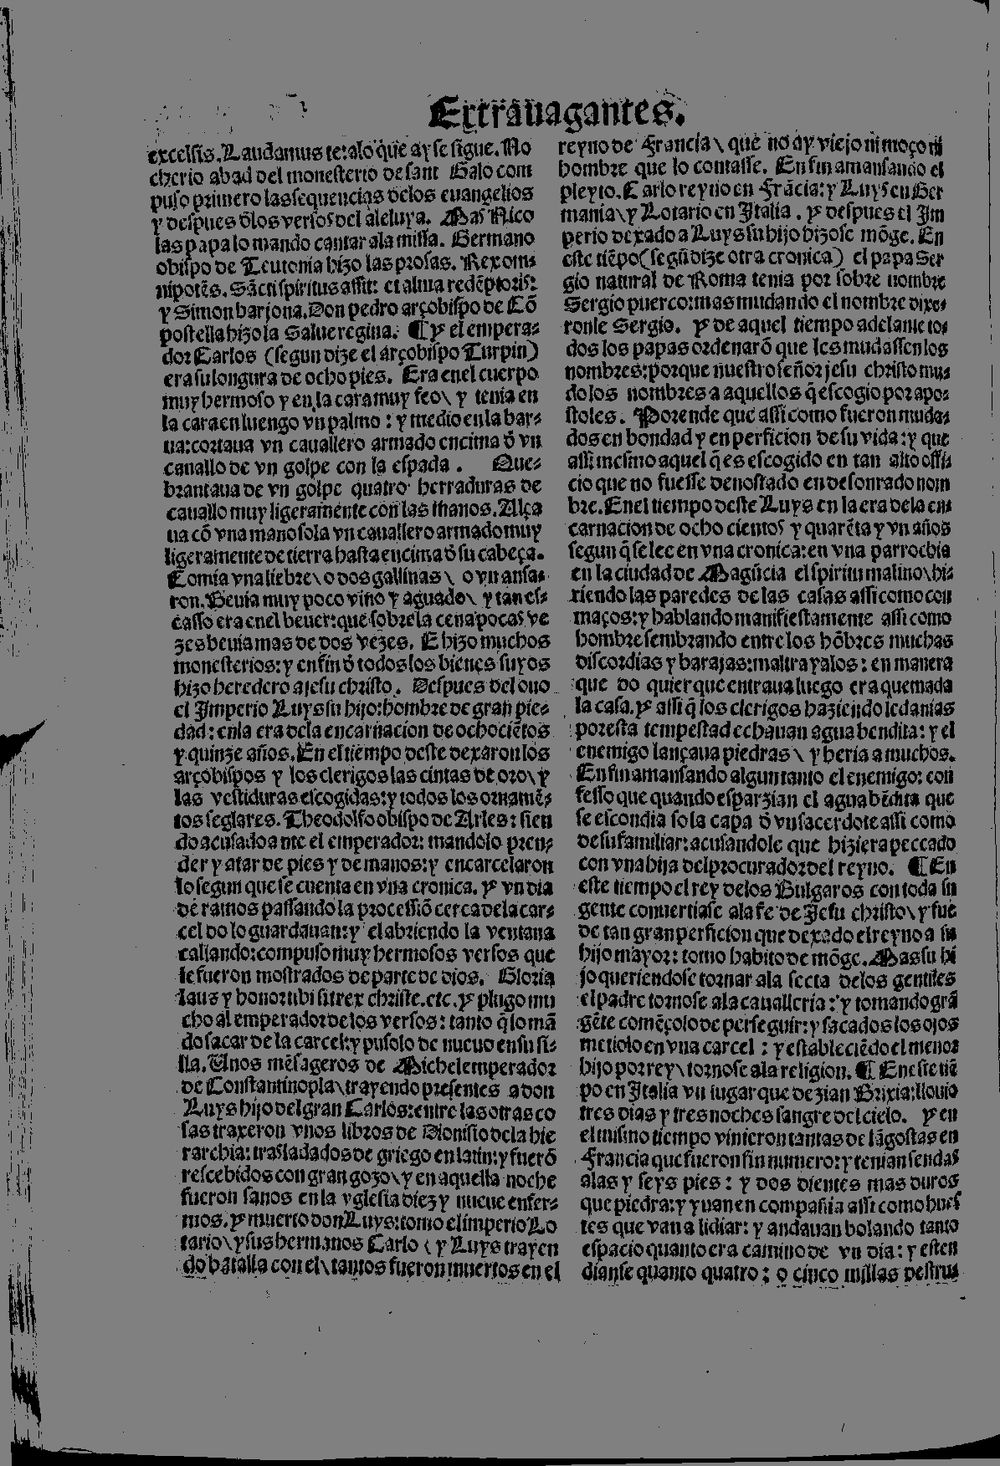 Extrauagantes.
excelsis. Laudamus te: alo q̃ue ay se sigue. No
cherio abad del monesterio de sant Galo com
puso primero las sequencias delos euangelios
y despues ðlos versos del aleluya. Mas Nico
las papa lo mando cantar ala missa. Germano
obispo de Teutonia hizo las prosas. Rex om-
nipotẽs. Sãcti spiritus assit: et alma redẽptoris:
y Simon barjona. Don pedro arçobispo de Cõ
postella hizo la Salue regina. ¶ Y el empera-
dor Carlos (segun dize el arçobispo Turpin)
era su longura de ocho pies. Era enel cuerpo
muy hermoso y en la cara muy feo\ y tenia en
la cara en luengo vn palmo: y medio en la bar-
ua: cortaua vn cauallero armado encima ð vn
cauallo de vn golpe con la espada. Que-
brantaua de vn golpe quatro herraduras de
cauallo muy ligeramente con las manos. Alça
ua cõ vna mano sola vn cauallero armado muy
ligeramente de tierra hasta encima ð su cabeça.
Comia vna liebre\ o dos gallinas\ o vn ansa-
ron. Beuia muy poco vino y aguado\ y tan es-
casso era enel beuer: que sobre la cena pocas ve
zes beuia mas de dos vezes. E hizo muchos
monesterios: y en fin ð todos los bienes suyos
hizo heredero a jesu christo. Despues del ouo
el Imperio Luys su hijo: hombre de gran pie-
dad: enla era dela encarnacion de ochociẽtos
y quinze años. En el tiempo deste dexaron los
arçobispos y los clerigos las cintas de oro\ y
las vestiduras escogidas: y todos los ornamẽ-
tos seglares. Theodolfo obispo de Arles: sien
do acusado ante el emperador: mandolo pren-
der y atar de pies y de manos: y encarcelaron
lo segun que se cuenta en vna cronica. Y vn dia
de ramos passando la processiõ cerca dela car-
cel do lo guardauan: y el abriendo la ventana
callando: compuso muy hermosos versos que
le fueron mostrados de parte de dios. Gloria
laus y honor tibi sit rex christe. etc. Y plugo mu
cho al emperador de los versos: tanto q̃ lo mã
do sacar de la carcel: y pusolo de nueuo en su si-
lla. Unos mẽsageros de Michel emperador
de Constantinopla\ trayendo presentes a don
Luys hijo del gran Carlos: entre las otras co
sas traxeron vnos libros de Dionisio dela hie
rarchia: trasladados de griego en latin: y fuerõ
rescebidos con gran gozo\ y en aquella noche
fueron sanos en la yglesia diez y nueue enfer-
mos. Y muerto don Luys: tomo el imperio Lo
tario\ y sus hermanos Carlo\ y Luys trayen
do batalla con el\ tantos fueron muertos en el
reyno de Francia\ que no ay viejo ni moço ni
hombre que lo contasse. En fin amansando el
pleyto. Carlo reyno en Frãcia: y Luys en Ger
mania\ y Lotario en Italia. Y despues el Im
perio dexado a Luys su hijo hizose mõge. En
este tiẽpo (segũ dize otra cronica) el papa Ser
gio natural de Roma tenia por sobre nombre
Sergio puerco: mas mudando el nombre dixe-
ronle Sergio. Y de aquel tiempo adelante to-
dos los papas ordenarõ que les mudassen los
nombres: porque nuestro señor jesu christo mu-
do los nombres a aquellos q̃ escogio por apo-
stoles. Porende que assi como fueron muda-
dos en bondad y en perficion de su vida: y que
assi mesmo aquel q̃ es escogido en tan alto offi-
cio que no fuesse denostado en desonrado nom
bre. Enel tiempo deste Luys en la era dela en-
carnacion de ocho cientos y quarẽta y vn años
segun q̃ se lee en vna cronica: en vna parrochia
en la ciudad de Magũcia el spiritu malino\ hi-
riendo las paredes de las casas assi como con
maços: y hablando manifiestamente assi como
hombre sembrando entre los hõbres muchas
discordias y barajas: maltrayalos: en manera
que do quier que entraua luego era quemada
la casa. Y assi q̃ los clerigos haziendo ledanias
por esta tempestad echauan agua bendita: y el
enemigo lançaua piedras\ y heria a muchos.
En fin amansando algun tanto el enemigo: con
fesso que quando esparzian el agua bẽdita que
se escondia so la capa ð vn sacerdote assi como
de su familiar: acusandole que hiziera peccado
con vna hija del procurador del reyno. ¶ En
este tiempo el rey delos Bulgaros con toda su
gente conuertiase ala fe de Jesu christo\ y fue
de tan gran perficion que dexado el reyno a su
hijo mayor: tomo habito de mõge. Mas su hi
jo queriendose tornar ala secta delos gentiles
el padre tornose ala caualleria: y tomando grã
gẽte comẽçolo de perseguir: y sacados los ojos
metiolo en vna carcel: y estableciẽdo el menor
hijo por rey\ tornose ala religion. ¶ Eneste tiẽ
po en Italia vn lugar que dezian Brixia: llouio
tres dias y tres noches sangre del cielo. Y en
el mismo tiempo vinieron tantas de lãgostas en
Francia que fueron sin numero: y tenian sendas
alas y seys pies: y dos dientes mas duros
que piedra: y yuan en compañia assi como hues
tes que van a lidiar: y andauan bolando tanto
espacio quanto era camino de vn dia: y esten
dianse quanto quatro: o cinco millas destrui